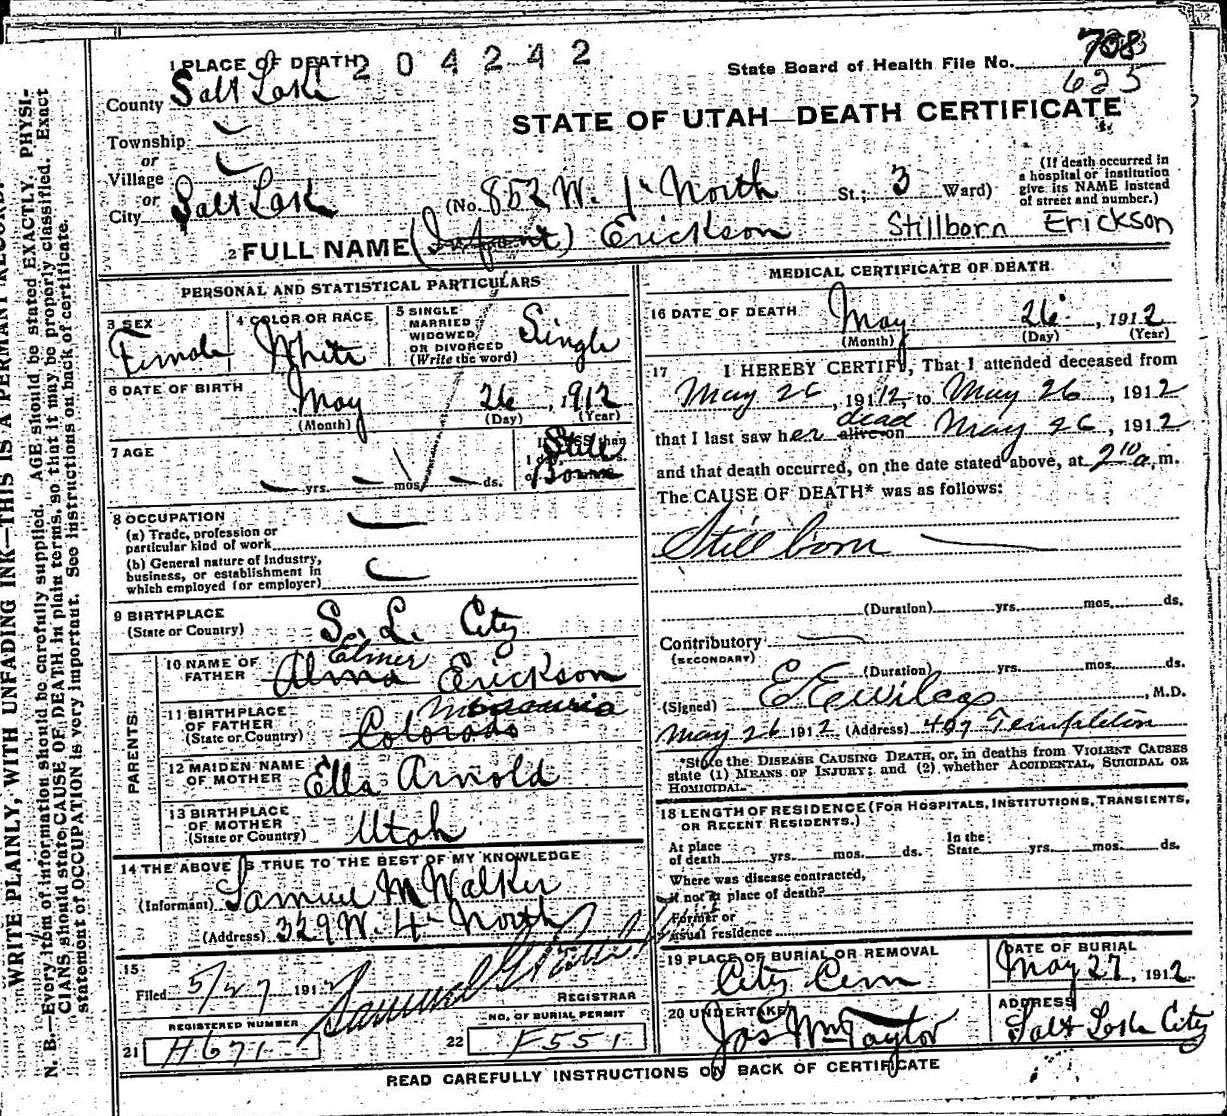 1 PLACE OF DEATH 204242
State Board of Health File No. 708
625
County Salt Lake
STATE OF UTAH—DEATH CERTIFICATE
Township
or
Village
or
City Salt Lake (No. 852 W. 1st North St.; 3 Ward)
(If death occurred in
a hospital or institution
give its NAME instead
of street and number.)
2 FULL NAME (Infant) Erickson Stillborn Erickson
PERSONAL AND STATISTICAL PARTICULARS
3 SEX
Female
4 COLOR OR RACE
White
5 SINGLE
MARRIED
WIDOWED
OR DIVORCED
(Write the word)
Single
6 DATE OF BIRTH
May 26, 1912
(Month) (Day) (Year)
7 AGE
yrs. mos. ds.
Still
Borne
8 OCCUPATION
(a) Trade, profession or
particular kind of work
(b) General nature of Industry,
business, or establishment in
which employed (or employer)
9 BIRTHPLACE
(State or Country)
S. L. City
PARENTS
10 NAME OF
FATHER
Elmer
Alma Erickson
11 BIRTHPLACE
OF FATHER
(State or Country)
Missouria
Colorado
12 MAIDEN NAME
OF MOTHER
Ella Arnold
13 BIRTHPLACE
OF MOTHER
(State or Country)
Utah
14 THE ABOVE IS TRUE TO THE BEST OF MY KNOWLEDGE
(Informant) Samuel M Walker
(Address) 329 W. 4th North
15
Filed 5/27 1912
REGISTRAR
REGISTERED NUMBER
21 H671
NO. OF BURIAL PERMIT
22 F551
MEDICAL CERTIFICATE OF DEATH
16 DATE OF DEATH May 26, 1912
(Month) (Day) (Year)
17 I HEREBY CERTIFY, That I attended deceased from
May 26, 1912 to May 26, 1912
that I last saw her alive on dead May 26, 1912
and that death occurred, on the date stated above, at 2 10 a. m.
The CAUSE OF DEATH* was as follows:
Stillborn
(Duration) yrs. mos. ds.
Contributory
(SECONDARY)
(Duration) yrs. mos. ds.
(Signed) E E Wilcox, M.D.
May 26 1912 (Address) 407 Templeton
*State the DISEASE CAUSING DEATH, or, in deaths from VIOLENT CAUSES
state (1) MEANS OF INJURY; and (2) whether ACCIDENTAL, SUICIDAL OR
HOMICIDAL.
18 LENGTH OF RESIDENCE (FOR HOSPITALS, INSTITUTIONS, TRANSIENTS,
OR RECENT RESIDENTS.)
At place
of death yrs. mos. ds.
In the
State yrs. mos. ds.
Where was disease contracted,
if not at place of death?
Former or
usual residence
19 PLACE OF BURIAL OR REMOVAL
City Cem
DATE OF BURIAL
May 27 1912
20 UNDERTAKER
Jos Wm Taylor
ADDRESS
Salt Lake City
READ CAREFULLY INSTRUCTIONS ON BACK OF CERTIFICATE
WRITE PLAINLY, WITH UNFADING INK—THIS IS A PERMANT RECORD.
N. B.—Every item of information should be carefully supplied. AGE should be stated EXACTLY. PHYSI-
CIANS should state CAUSE OF DEATH in plain terms, so that it may be properly classified. Exact
statement of OCCUPATION is very important. See instructions on back of certificate.